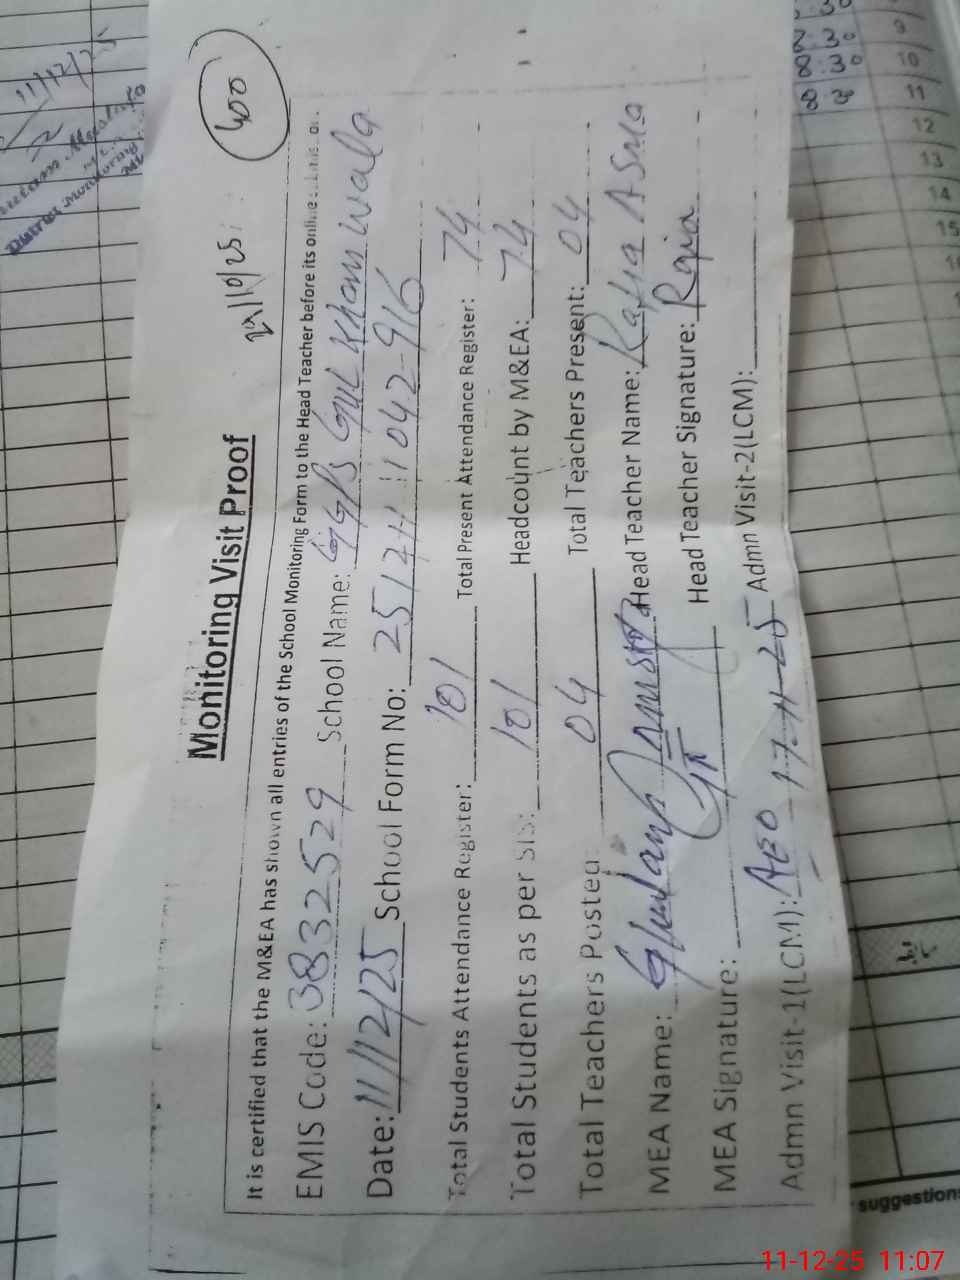 400
29/10/25
Monitoring Visit Proof
It is certified that the M&EA has shown all entries of the School Monitoring Form to the Head Teacher before its online
EMIS Code: 38332529 School Name: GGPS Gul Khan wala
Date: 11/12/25 School Form No: 251211 11042-916
Total Students Attendance Register: 101 Total Present Attendance Register: 74
Total Students as per SIS: 101 Headcount by M&EA: 74
Total Teachers Posted 04 Total Teachers Present: 04
MEA Name: Ghulam Head Teacher Name: Razia Asma
MEA Signature: Head Teacher Signature: Razia
Admn Visit-1(LCM): AEO 17-11-25 Admn Visit-2(LCM):
11/12/25
District Monitoring
30
8:30
8:30
8
9
10
11
12
13
14
15
suggestions
11-12-25 11:07